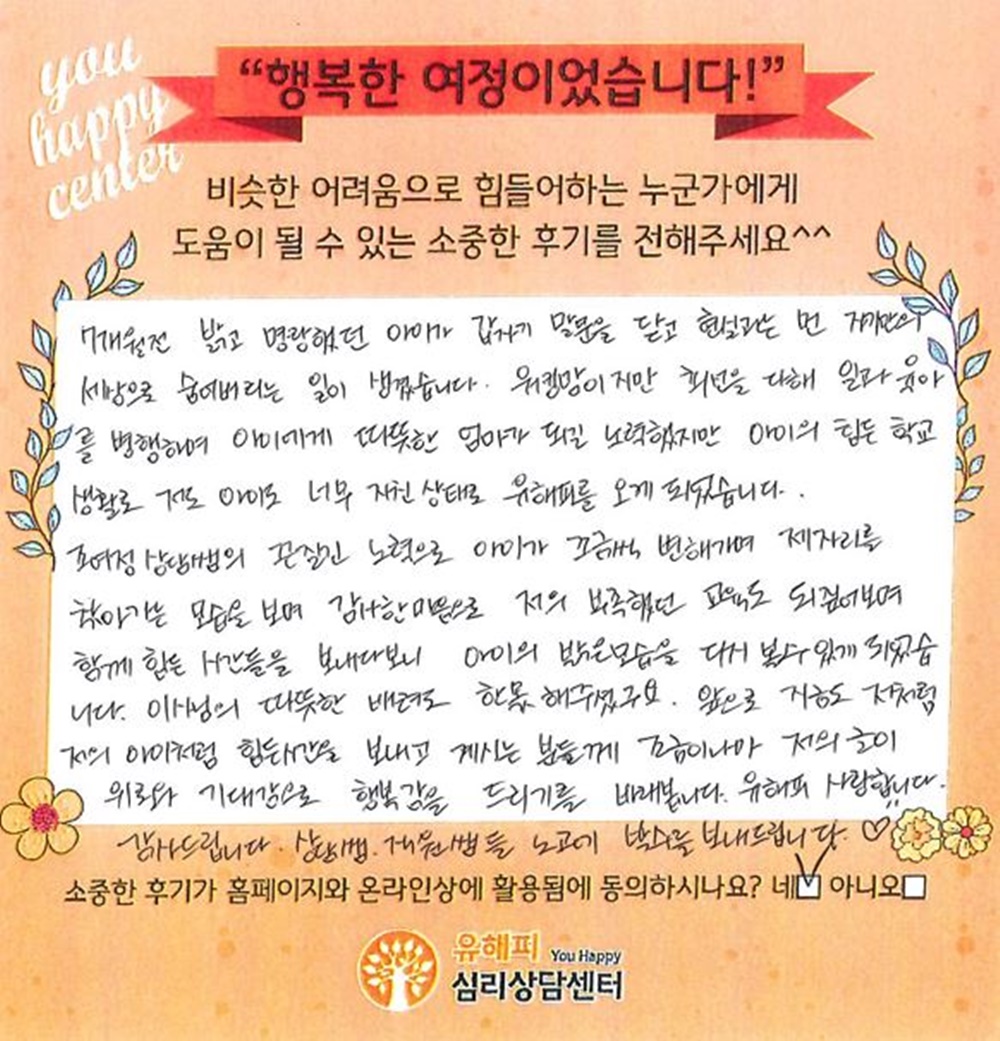 you
happy
center
“행복한 여정이었습니다!”
비슷한 어려움으로 힘들어하는 누군가에게
도움이 될 수 있는 소중한 후기를 전해주세요^^
7개월전 밝고 명랑했던 아이가 갑자기 말문을 닫고 현실과는 먼 자기만의
세상으로 숨어버리는 일이 생겼습니다. 워킹맘이지만 최선을 다해 일과 육아
를 병행하며 아이에게 따뜻한 엄마가 되길 노력했지만 아이의 힘든 학교
생활로 저도 아이도 너무 지친 상태로 유해피를 오게 되었습니다..
표여정 상담쌤의 끈질긴 노력으로 아이가 조금씩 변해가며 제자리를
찾아가는 모습을 보며 감사한 마음으로 저의 부족했던 교육도 되짚어보며
함께 힘든 시간들을 보내다보니 아이의 밝은모습을 다시 볼수있게 되었습
니다. 이사님의 따뜻한 배려도 한몫 해주셨구요. 앞으로 지금도 저처럼
저의 아이처럼 힘든시간을 보내고 계시는 분들께 조금이나마 저의 글이
위로와 기대감으로 행복감을 드리기를 바래봅니다. 유해피 사랑합니다.
감사드립니다. 상담쌤. 직원쌤들 노고에 박수를 보내드립니다. ♡
소중한 후기가 홈페이지와 온라인상에 활용됨에 동의하시나요? 네☑ 아니오□
유해피 You Happy
심리상담센터